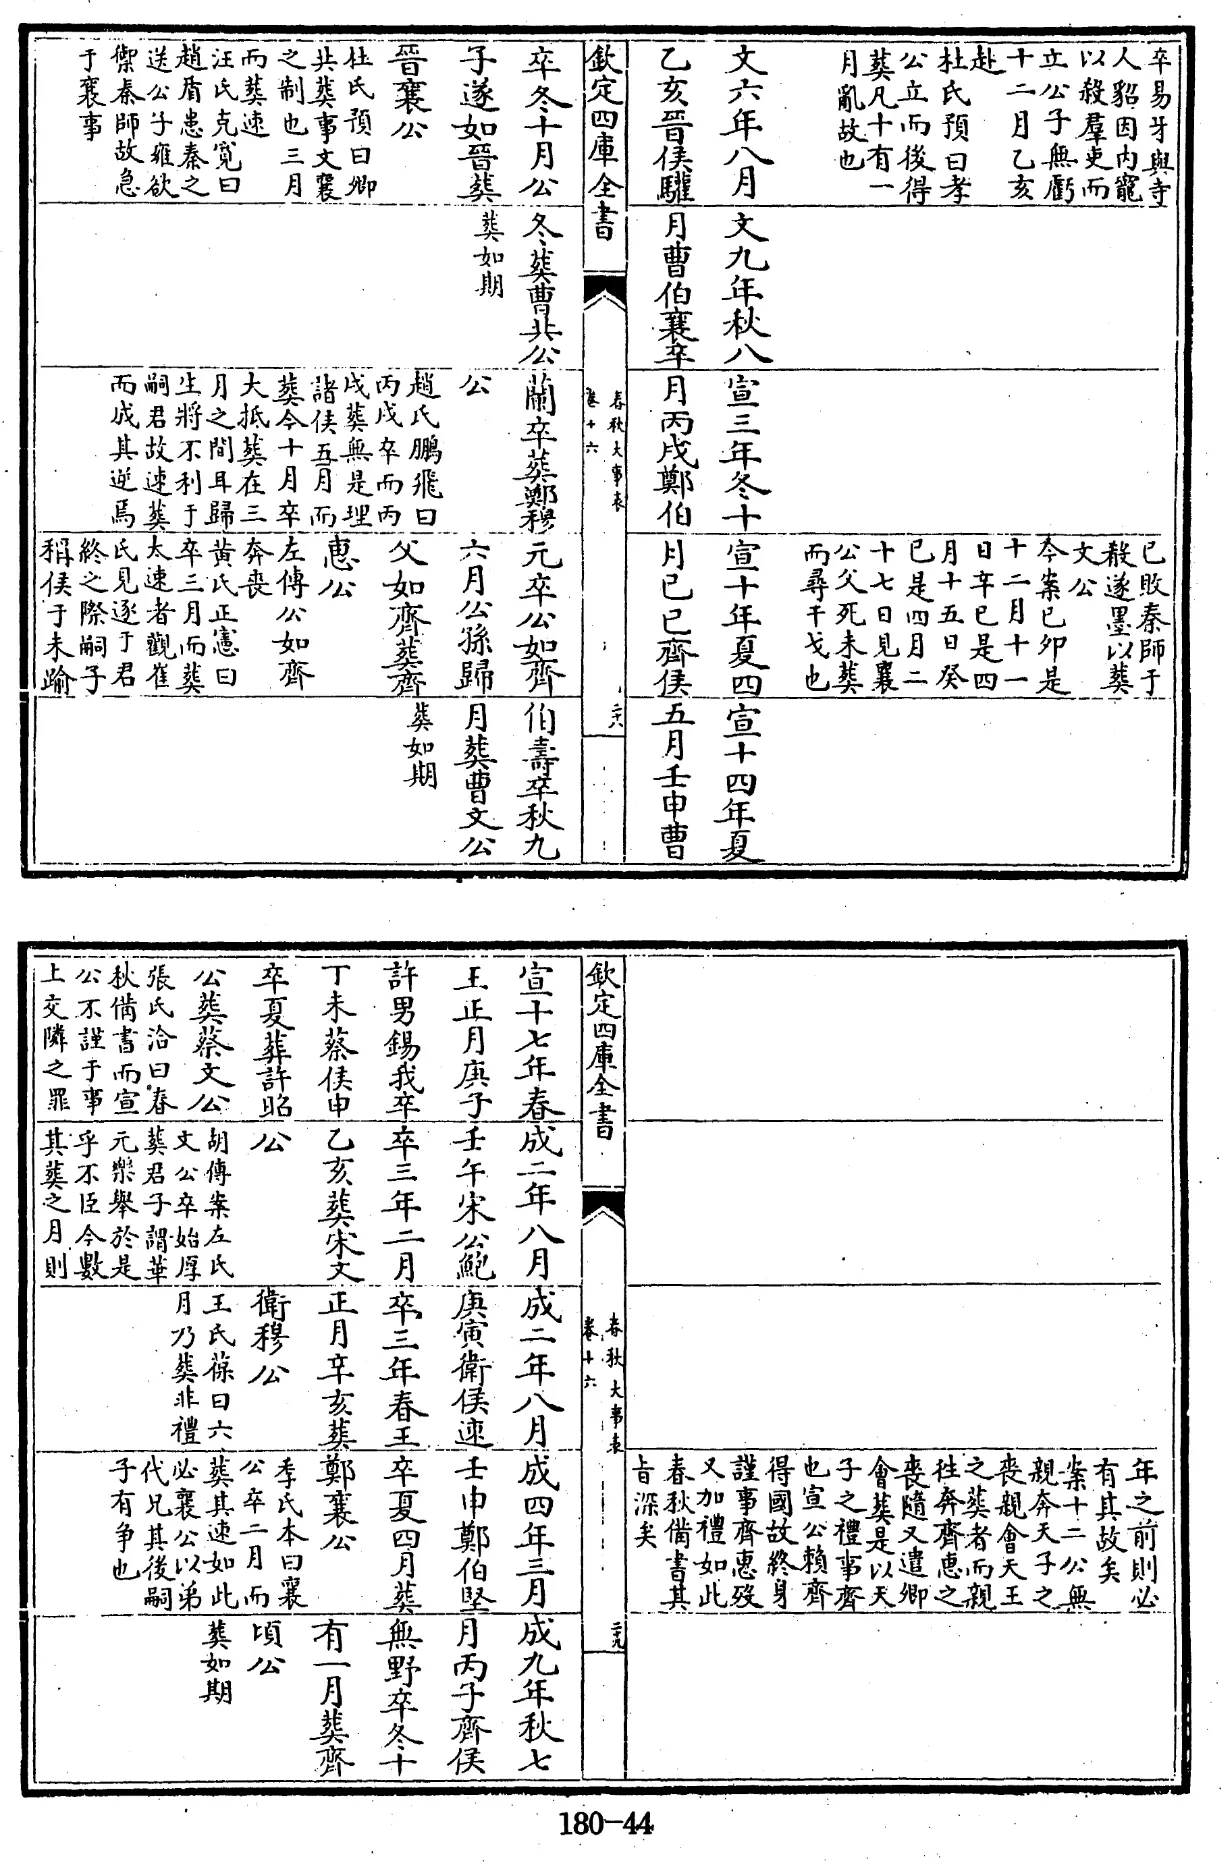 卒易牙與寺
人貂因内寵
以殺羣吏而
立公子無虧
十二月乙亥
赴
杜氏預曰孝
公立而後得
葬凡十有一
月亂故也
文六年八月
乙亥晉侯驩
卒冬十月公
子遂如晉葬
晉襄公
杜氏預曰卿
共葬事文襄
之制也三月
而葬速
汪氏克寛曰
趙盾患秦之
送公子雍欲
禦秦師故急
于襄事
文九年秋八
月曹伯襄卒
冬葬曹共公
葬如期
宣三年冬十
月丙戌鄭伯
蘭卒葬鄭穆
公
趙氏鵬飛曰
丙戌卒而丙
戌葬無是理
諸侯五月而
葬今十月卒
大抵葬在三
月之間耳歸
生將不利于
嗣君故速葬
而成其逆焉
已敗秦師于
殽遂墨以葬
文公
今案已卯是
十二月十一
日辛巳是四
月十五日癸
巳是四月二
十七日見襄
公父死未葬
而尋干戈也
宣十年夏四
月已巳齊侯
元卒公如齊
六月公孫歸
父如齊葬齊
惠公
左傳公如齊
奔喪
黄氏正憲曰
卒三月而葬
太速者觀崔
氏見逐于君
終之際嗣子
稱侯于未踰
宣十四年夏
五月壬申曹
伯壽卒秋九
月葬曹文公
葬如期
欽定四庫全書
春秋大事表
卷十六
二十八
年之前則必
有其故矣
案十二公無
親奔天子之
喪親會天王
之葬者而親
往奔齊惠之
喪隨又遣卿
會葬是以天
子之禮事齊
也宣公賴齊
得國故終身
謹事齊惠殁
又加禮如此
春秋備書其
旨深矣
欽定四庫全書
春秋大事表
卷十六
二十九
宣十七年春
王正月庚子
許男錫我卒
丁未蔡侯申
卒夏葬許昭
公葬蔡文公
張氏洽曰春
秋備書而宣
公不謹于事
上交隣之罪
成二年八月
壬午宋公鮑
卒三年二月
乙亥葬宋文
公
胡傳案左氏
文公卒始厚
葬君子謂華
元樂舉於是
乎不臣今數
其葬之月則
成二年八月
庚寅衛侯速
卒三年春王
正月辛亥葬
衛穆公
王氏葆曰六
月乃葬非禮
成四年三月
壬申鄭伯堅
卒夏四月葬
鄭襄公
季氏本曰襄
公卒二月而
葬其速如此
必襄公以弟
代兄其後嗣
子有争也
成九年秋七
月丙子齊侯
無野卒冬十
有一月葬齊
頃公
葬如期
180-44